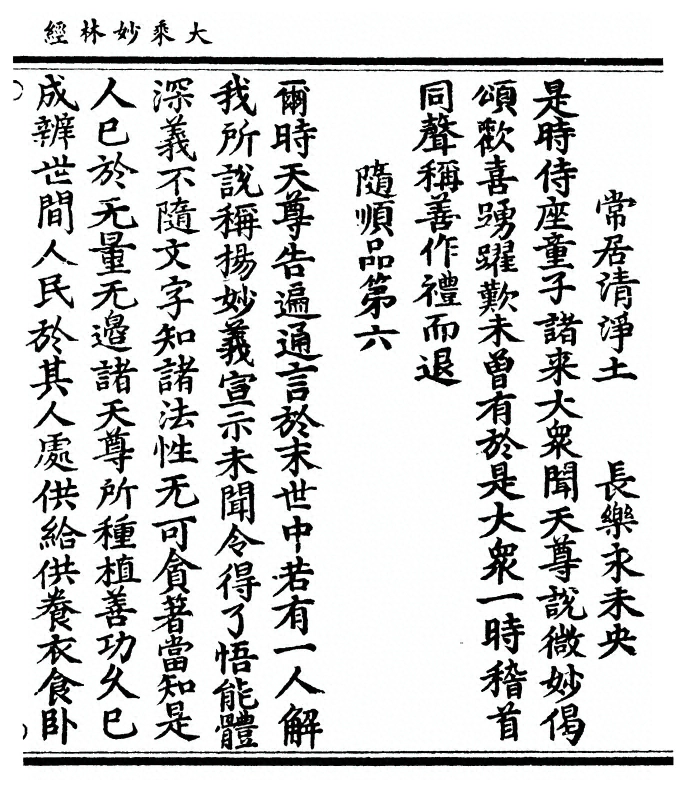 大乘妙林經
常居清淨土　長樂永未央
是時侍座童子諸來大衆聞天尊說微妙偈
頌歡喜踴躍歎未曾有於是大衆一時稽首
同聲稱善作禮而退
隨順品第六
爾時天尊告遍通言於末世中若有一人解
我所說稱揚妙義宣示未聞令得了悟能體
深義不隨文字知諸法性无可貪著當知是
人已於无量无邊諸天尊所種植善功久已
成辦世間人民於其人處供給供養衣食卧